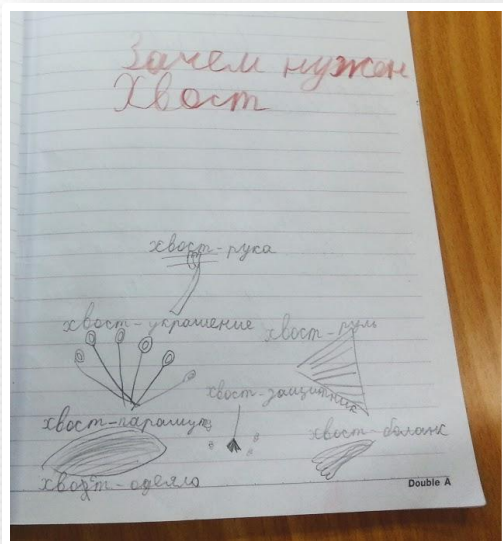 Зачем нужен
Хвост
хвост-рука
хвост-украшение
хвост-руль
хвост-защитник
хвост-парашут
хвост-баланс
хвост-одеяло
Double A